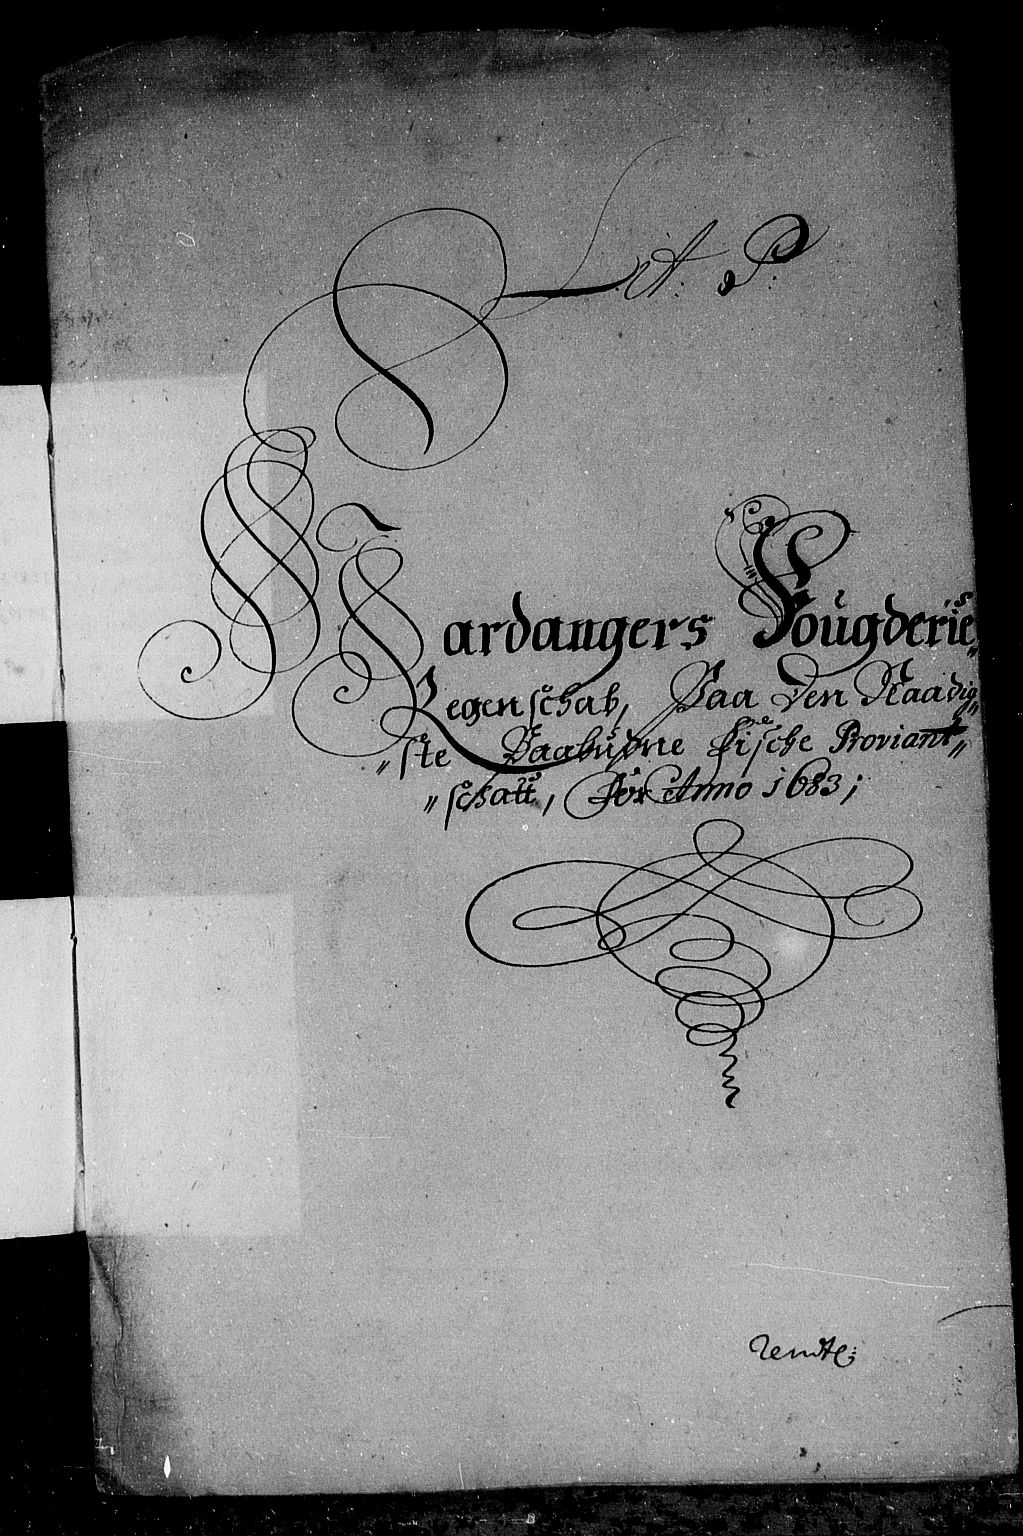 Lit: P:
Hardangers Fougderies
Regenschab, Paa Den Naadig„
„ste Paabudne Fische Proviant„
„schatt, For Anno 1683;